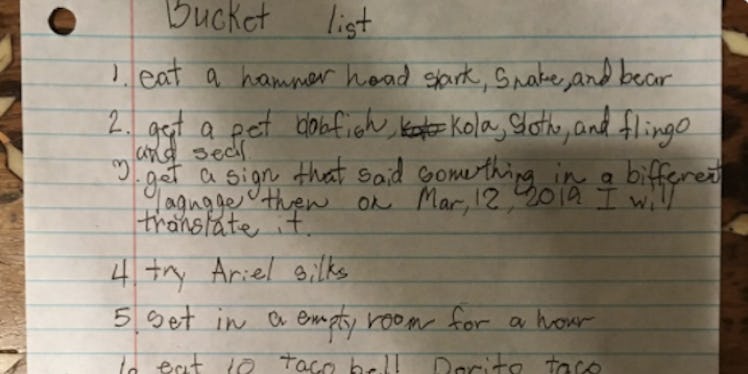 Bucket list
1. eat a hammer head shark, Snake, and bear
2. get a pet blobfish, Kola, Sloth, and flingo
and seal
3. get a sign that said something in a bifferent
lagnagge then on Mar, 12, 2019 I will
translate it.
4. try Ariel silks
5. set in a empty room for a hour
6. eat 10 Taco bell Dorito taco